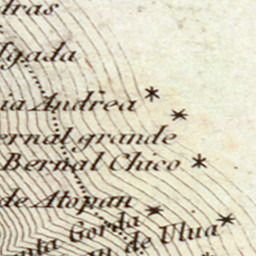 dras
lgada
ia Andrea
ernal grande
Bernal Chico
de Atopan
nta Gorda
an de Ulua